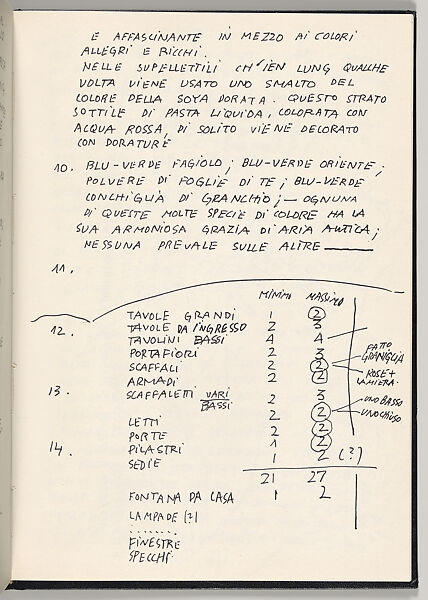 E AFFASCINANTE IN MEZZO AI COLORI
ALLEGRI E RICCHI.
NELLE SUPELLETTILI CH'IEN LUNG QUALCHE
VOLTA VIENE USATO UNO SMALTO DEL
COLORE DELLA SOYA DORATA. QUESTO STRATO
SOTTILE DI PASTA LIQUIDA, COLORATA CON
ACQUA ROSSA, DI SOLITO VIENE DECORATO
CON DORATURE
10. BLU-VERDE FAGIOLO; BLU-VERDE ORIENTE;
POLVERE DI FOGLIE DI TE; BLU-VERDE
CONCHIGLIA DI GRANCHIO; — OGNUNA
DI QUESTE MOLTE SPECIE DI COLORE HA LA
SUA ARMONIOSA GRAZIA DI ARIA ANTICA;
NESSUNA PREVALE SULLE ALTRE ———
11.
MINIMO MASSIMO
TAVOLE GRANDI 1 2
12. TAVOLE DA INGRESSO 2 3
TAVOLINI BASSI 4 4
PORTAFIORI 2 3 FATTO GRANIGLIA
SCAFFALI 2 2
ARMADI 2 2 ROSE + LAMIERA
13. SCAFFALETTI VARI BASSI 2 3 UNO BASSO
LETTI 2 2 UNO CHIUSO
PORTE 2 2
PILASTRI 1 2
14. SEDIE 1 2 (?)
21 27
FONTANA DA CASA 1 2
LAMPADE (?)
........
FINESTRE
SPECCHI